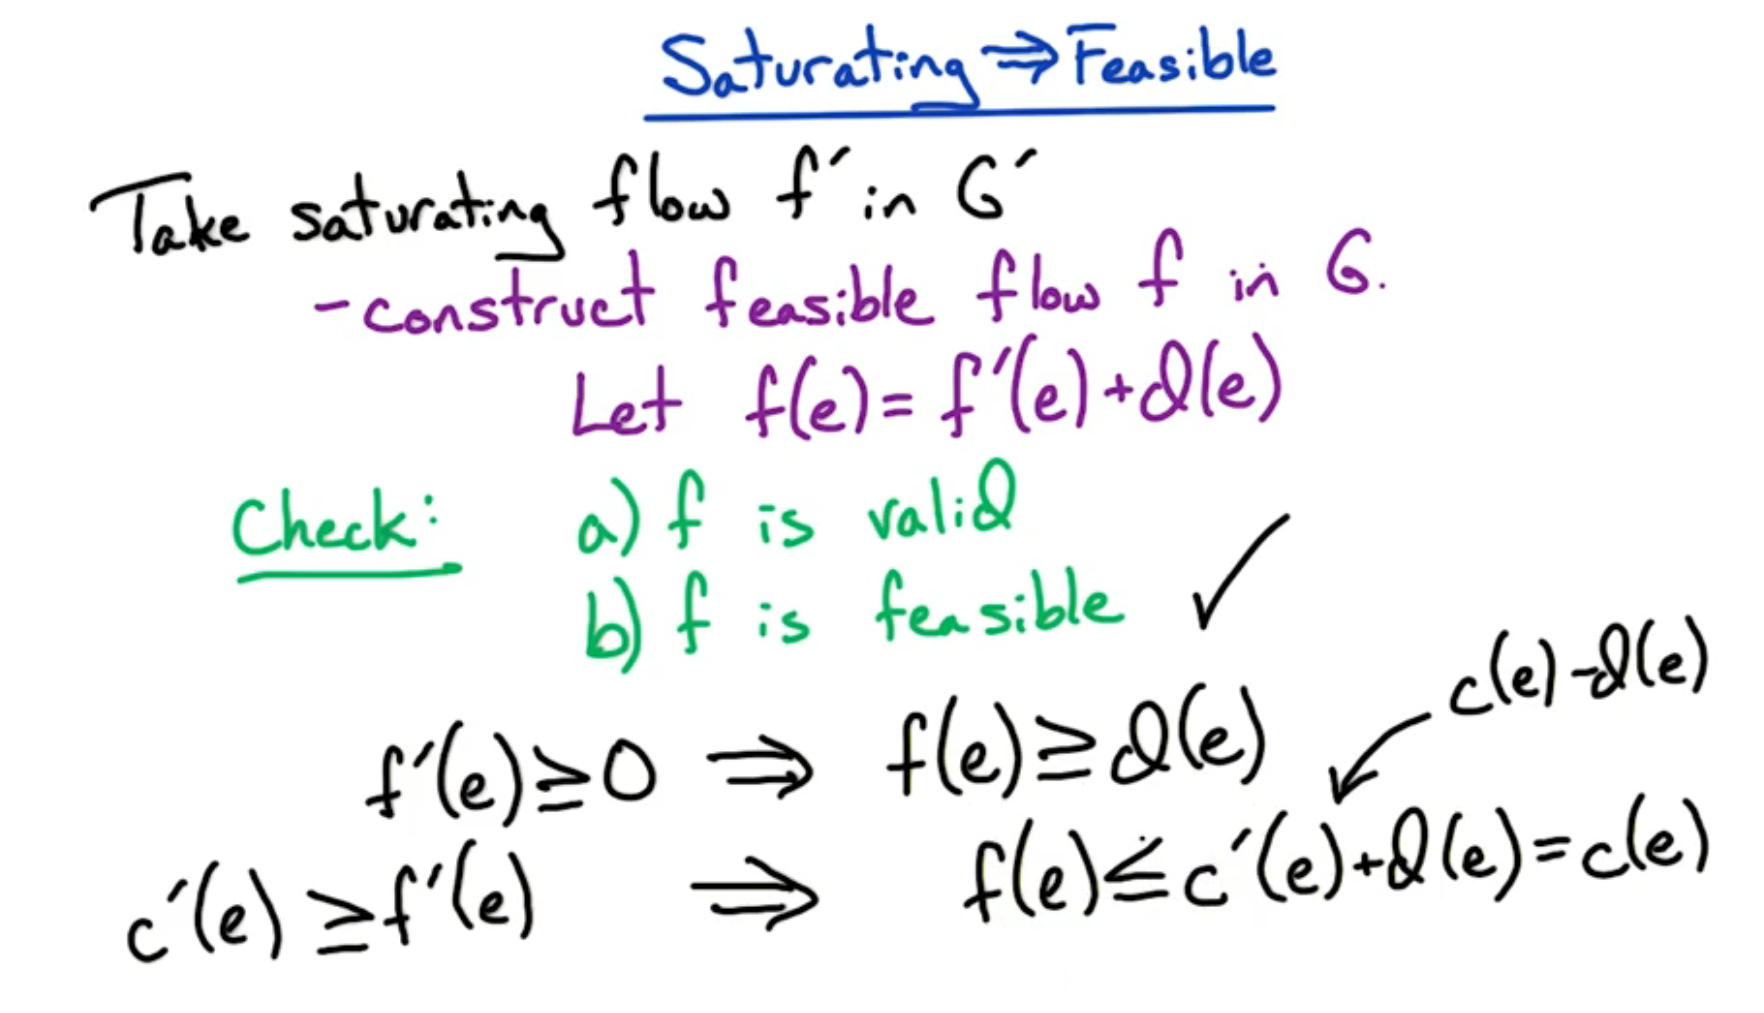 Saturating ⇒ Feasible
Take saturating flow f′ in G′
- construct feasible flow f in G.
Let f(e) = f′(e) + d(e)
Check: a) f is valid
b) f is feasible ✓
c(e) - d(e)
f′(e) ≥ 0 ⇒ f(e) ≥ d(e)
c′(e) ≥ f′(e) ⇒ f(e) ≤ c′(e) + d(e) = c(e)